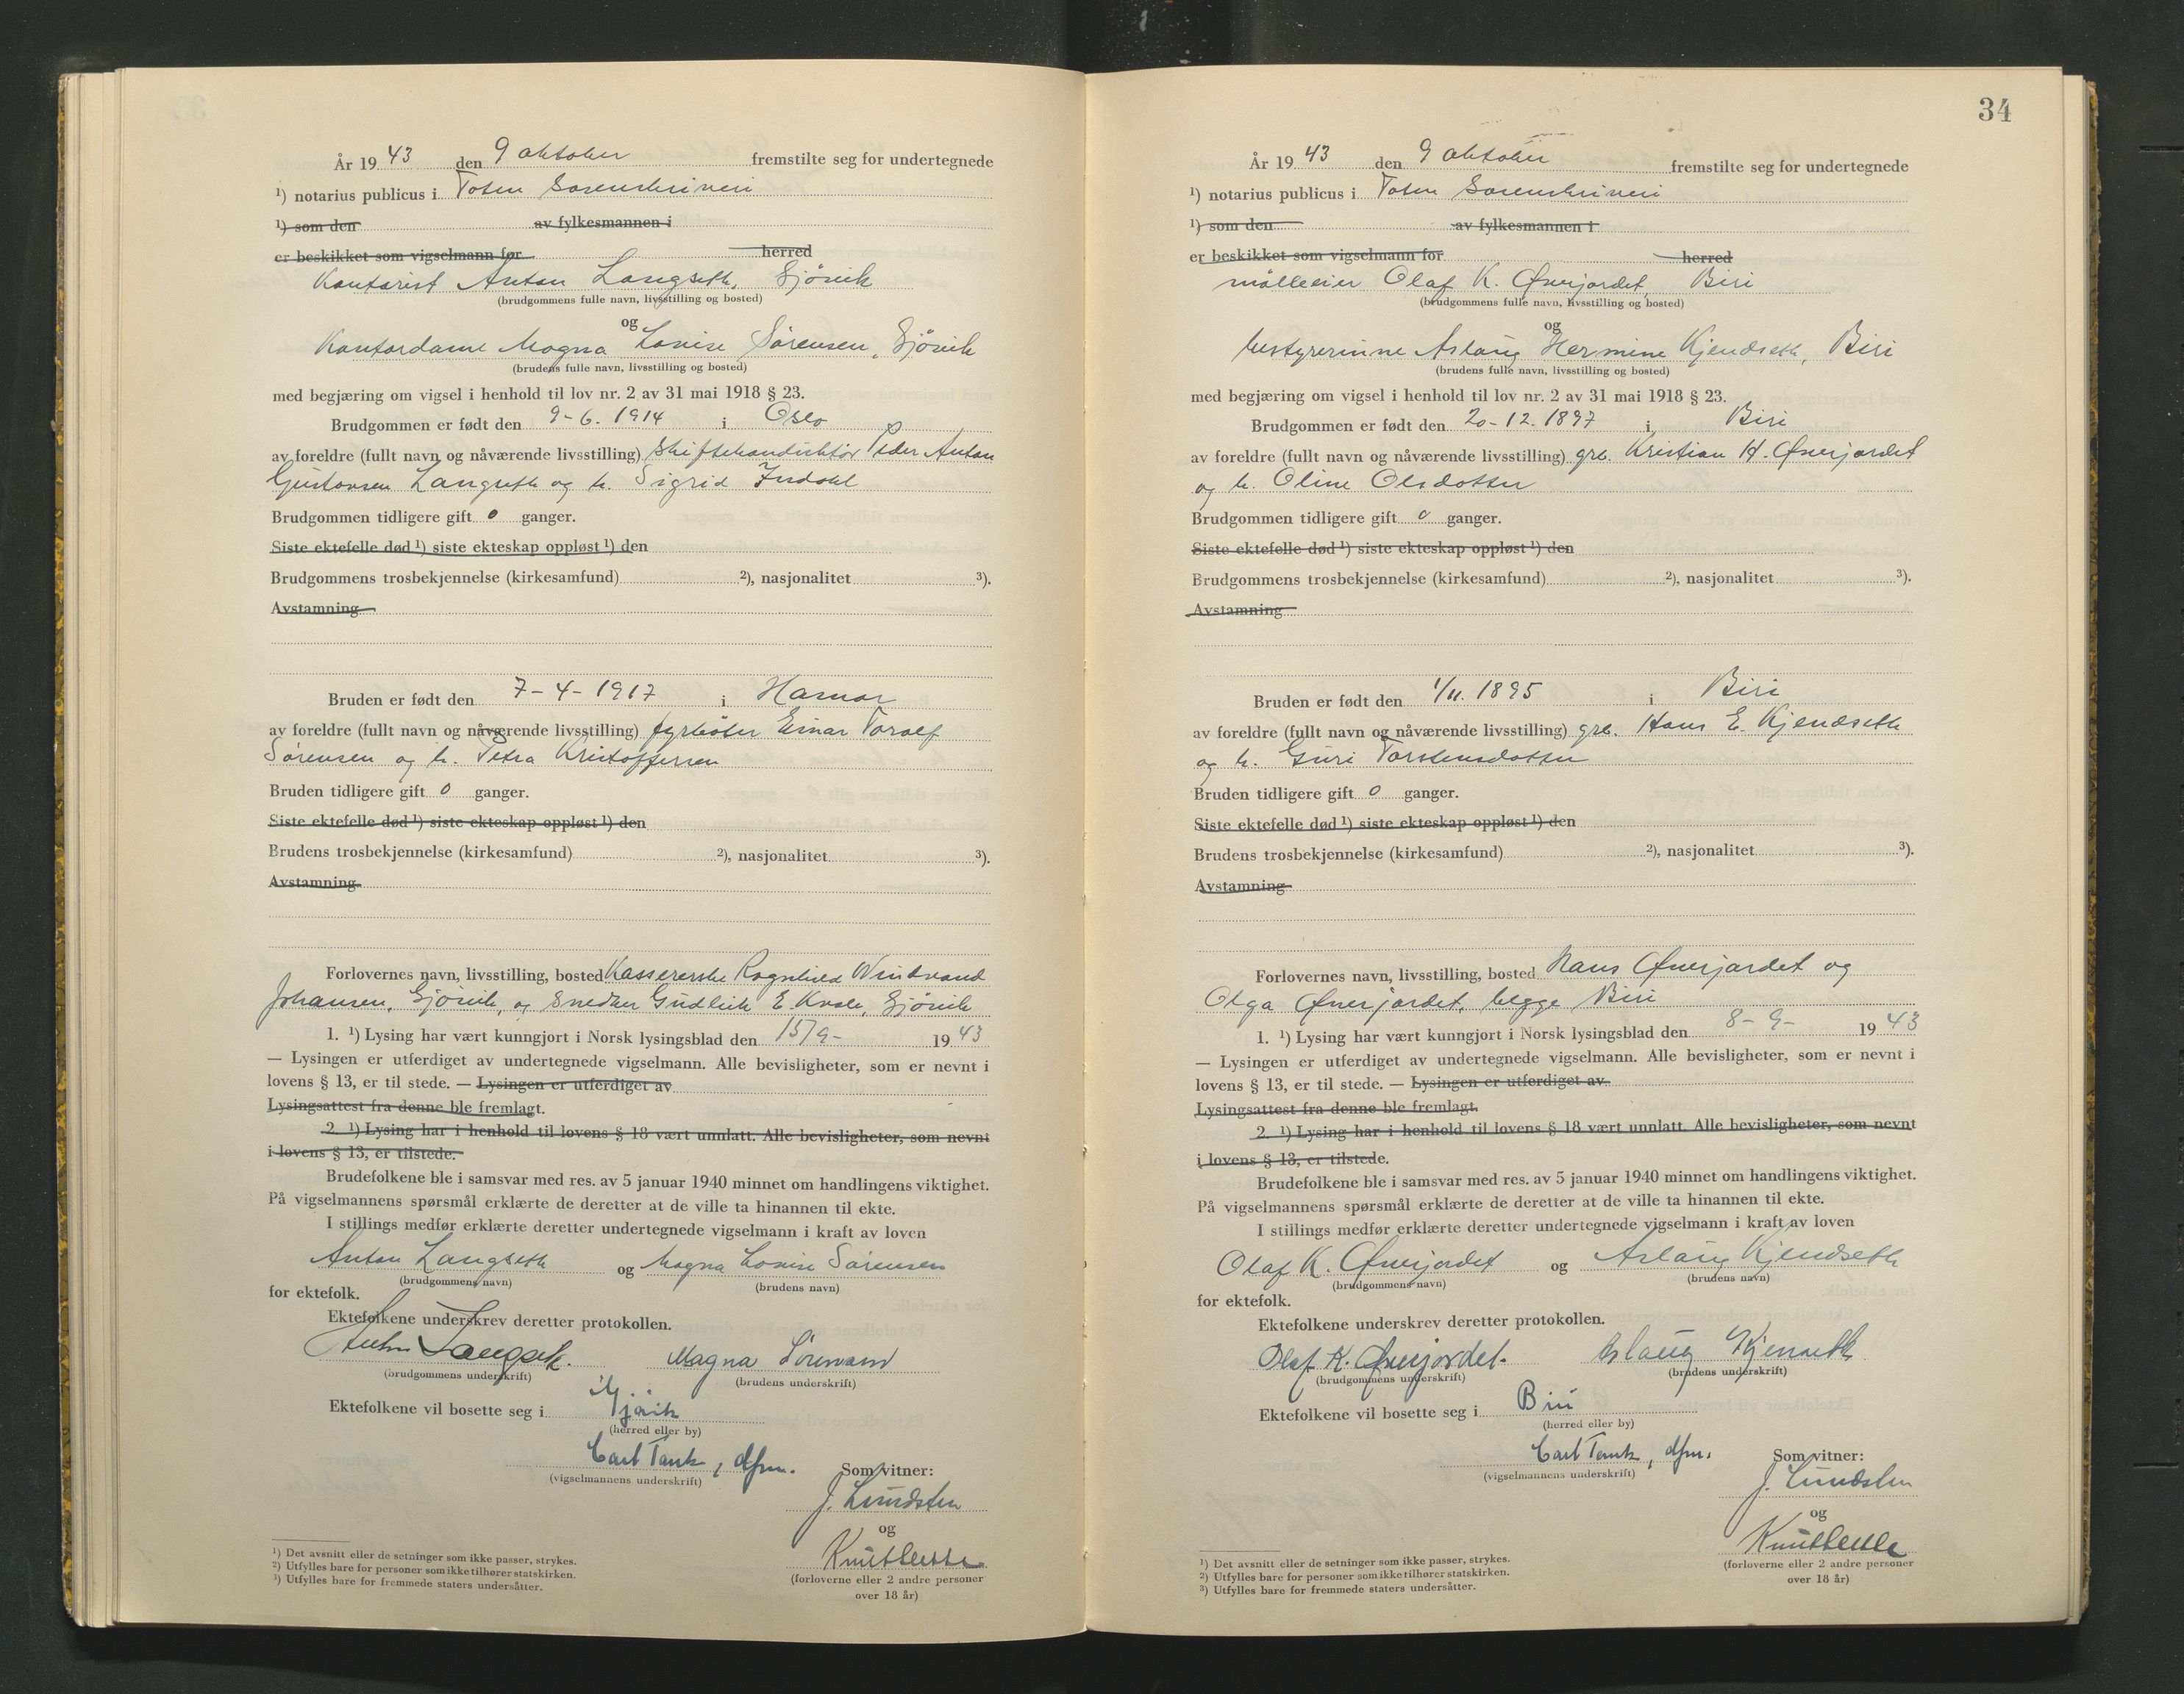 År 1943 den 9 oktober fremstilte seg for undertegnede
¹) notarius publicus i Toten Sorenskriveri
¹) som den av fylkesmannen i
er beskikket som vigselmann for herred
Kontorist Anton Langseth, Gjövik
(brudgommens fulle navn, livsstilling og bosted)
og
Kontordame Magna Lovise Sörensen, Gjövik
(brudens fulle navn, livsstilling og bosted)
med begjæring om vigsel i henhold til lov nr. 2 av 31 mai 1918 § 23.
Brudgommen er født den 9-6. 1914 i Oslo
av foreldre (fullt navn og nåværende livsstilling) Peder Anton
Gustavsen Langseth og h. Sigrid Indahl
Brudgommen tidligere gift 0 ganger.
Siste ektefelle død ¹) siste ekteskap oppløst ¹) den
Brudgommens trosbekjennelse (kirkesamfund) ²), nasjonalitet ³).
Avstamning
Bruden er født den 7-4-1917 i Hamar
av foreldre (fullt navn og nåværende livsstilling) fyrböter Einar Torolf
Sörensen og h. Petra Kristoffersen
Bruden tidligere gift 0 ganger.
Siste ektefelle død ¹) siste ekteskap oppløst ¹) den
Brudens trosbekjennelse (kirkesamfund) ²), nasjonalitet ³).
Avstamning
Forlovernes navn, livsstilling, bosted Kassererske Ragnhild Windrand
Johansen, Gjövik, og Snedker Gudleik E Kvale, Gjövik
1. ¹) Lysing har vært kunngjort i Norsk lysingsblad den 15/9- 1943
— Lysingen er utferdiget av undertegnede vigselmann. Alle bevisligheter, som er nevnt i
lovens § 13, er til stede. — Lysingen er utferdiget av
Lysingsattest fra denne ble fremlagt.
2. ¹) Lysing har i henhold til lovens § 18 vært unnlatt. Alle bevisligheter, som nevnt
i lovens § 13, er tilstede.
Brudefolkene ble i samsvar med res. av 5 januar 1940 minnet om handlingens viktighet.
På vigselmannens spørsmål erklærte de deretter at de ville ta hinannen til ekte.
I stillings medfør erklærte deretter undertegnede vigselmann i kraft av loven
Anton Langseth og Magna Lovise Sörensen
(brudgommens navn) (brudens navn)
for ektefolk.
Ektefolkene underskrev deretter protokollen.
Anton Langseth. Magna Sörensen
(brudgommens underskrift) (brudens underskrift)
Ektefolkene vil bosette seg i Gjövik
(herred eller by)
Carl Tank, dfm. Som vitner:
(vigselmannens underskrift)
J. Lundsten
og
(forloverne eller 2 andre personer
over 18 år)
¹) Det avsnitt eller de setninger som ikke passer, strykes.
²) Utfylles bare for personer som ikke tilhører statskirken.
³) Utfylles bare for fremmede staters undersåtter.
34
År 1943 den 9 oktober fremstilte seg for undertegnede
¹) notarius publicus i Toten Sorenskriveri
¹) som den av fylkesmannen i
er beskikket som vigselmann for herred
mölleeier Olaf K. Øverjordet, Biri
(brudgommens fulle navn, livsstilling og bosted)
og
bestyrerinne Aslaug Hermine Kjendseth, Biri
(brudens fulle navn, livsstilling og bosted)
med begjæring om vigsel i henhold til lov nr. 2 av 31 mai 1918 § 23.
Brudgommen er født den 20-12. 1897 i Biri
av foreldre (fullt navn og nåværende livsstilling) grb. Kristian H. Øverjordet
og h. Oline Olsdotter
Brudgommen tidligere gift 0 ganger.
Siste ektefelle død ¹) siste ekteskap oppløst ¹) den
Brudgommens trosbekjennelse (kirkesamfund) ²), nasjonalitet ³).
Avstamning
Bruden er født den 1/11. 1895 i Biri
av foreldre (fullt navn og nåværende livsstilling) grb. Hans E. Kjendseth
og h. Guri Torstensdotter
Bruden tidligere gift 0 ganger.
Siste ektefelle død ¹) siste ekteskap oppløst ¹) den
Brudens trosbekjennelse (kirkesamfund) ²), nasjonalitet ³).
Avstamning
Forlovernes navn, livsstilling, bosted Hans Øverjordet og
Olga Øverjordet, begge Biri
1. ¹) Lysing har vært kunngjort i Norsk lysingsblad den 8-9- 1943
— Lysingen er utferdiget av undertegnede vigselmann. Alle bevisligheter, som er nevnt i
lovens § 13, er til stede. — Lysingen er utferdiget av
Lysingsattest fra denne ble fremlagt.
2. ¹) Lysing har i henhold til lovens § 18 vært unnlatt. Alle bevisligheter, som nevnt
i lovens § 13, er tilstede.
Brudefolkene ble i samsvar med res. av 5 januar 1940 minnet om handlingens viktighet.
På vigselmannens spørsmål erklærte de deretter at de ville ta hinannen til ekte.
I stillings medfør erklærte deretter undertegnede vigselmann i kraft av loven
Olaf K. Øverjordet og Aslaug Kjendseth
(brudgommens navn) (brudens navn)
for ektefolk.
Ektefolkene underskrev deretter protokollen.
Olaf K. Øverjordet. Aslaug Kjenseth
(brudgommens underskrift) (brudens underskrift)
Ektefolkene vil bosette seg i Biri
(herred eller by)
Carl Tank, dfm. Som vitner:
(vigselmannens underskrift)
J. Lundsten
og
(forloverne eller 2 andre personer
over 18 år)
¹) Det avsnitt eller de setninger som ikke passer, strykes.
²) Utfylles bare for personer som ikke tilhører statskirken.
³) Utfylles bare for fremmede staters undersåtter.